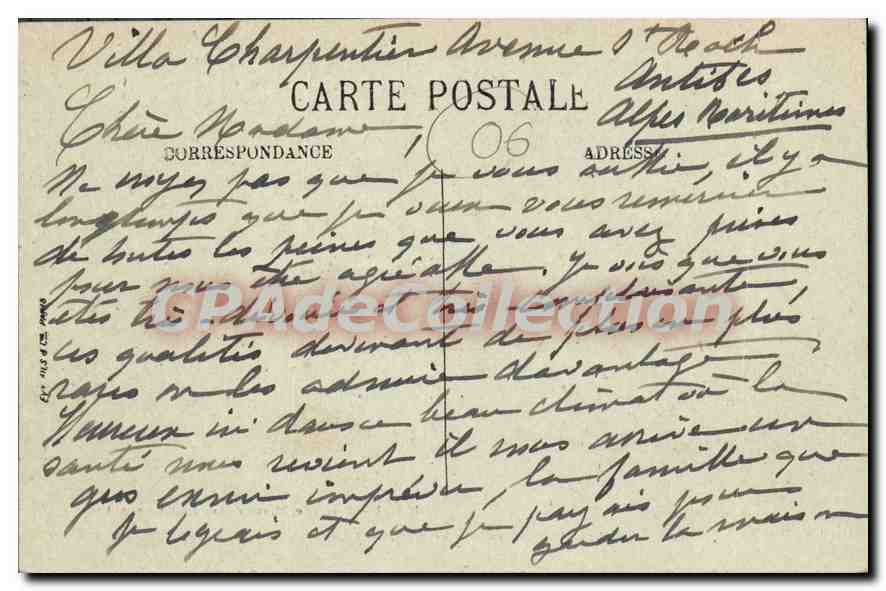 Villa Charpentier Avenue St Roch
Antibes
CARTE POSTALE
Alpes Maritimes
Chère Madame,
06
CORRESPONDANCE
ADRESSE
Ne croyez pas que je vous oublie, il y a
longtemps que je veux vous remercier
de toutes les peines que vous avez prises
pour nous être agréable. Je vois que vous
êtes très dévouée et très complaisante,
CPAdeCollection.com
ces qualités devenant de plus en plus
rares on les admire davantage
Heureux ici dans ce beau climat où la
santé nous revient il nous arrive un
gros ennui imprévu, la famille que
je logeais et que je payais pour
garder la maison